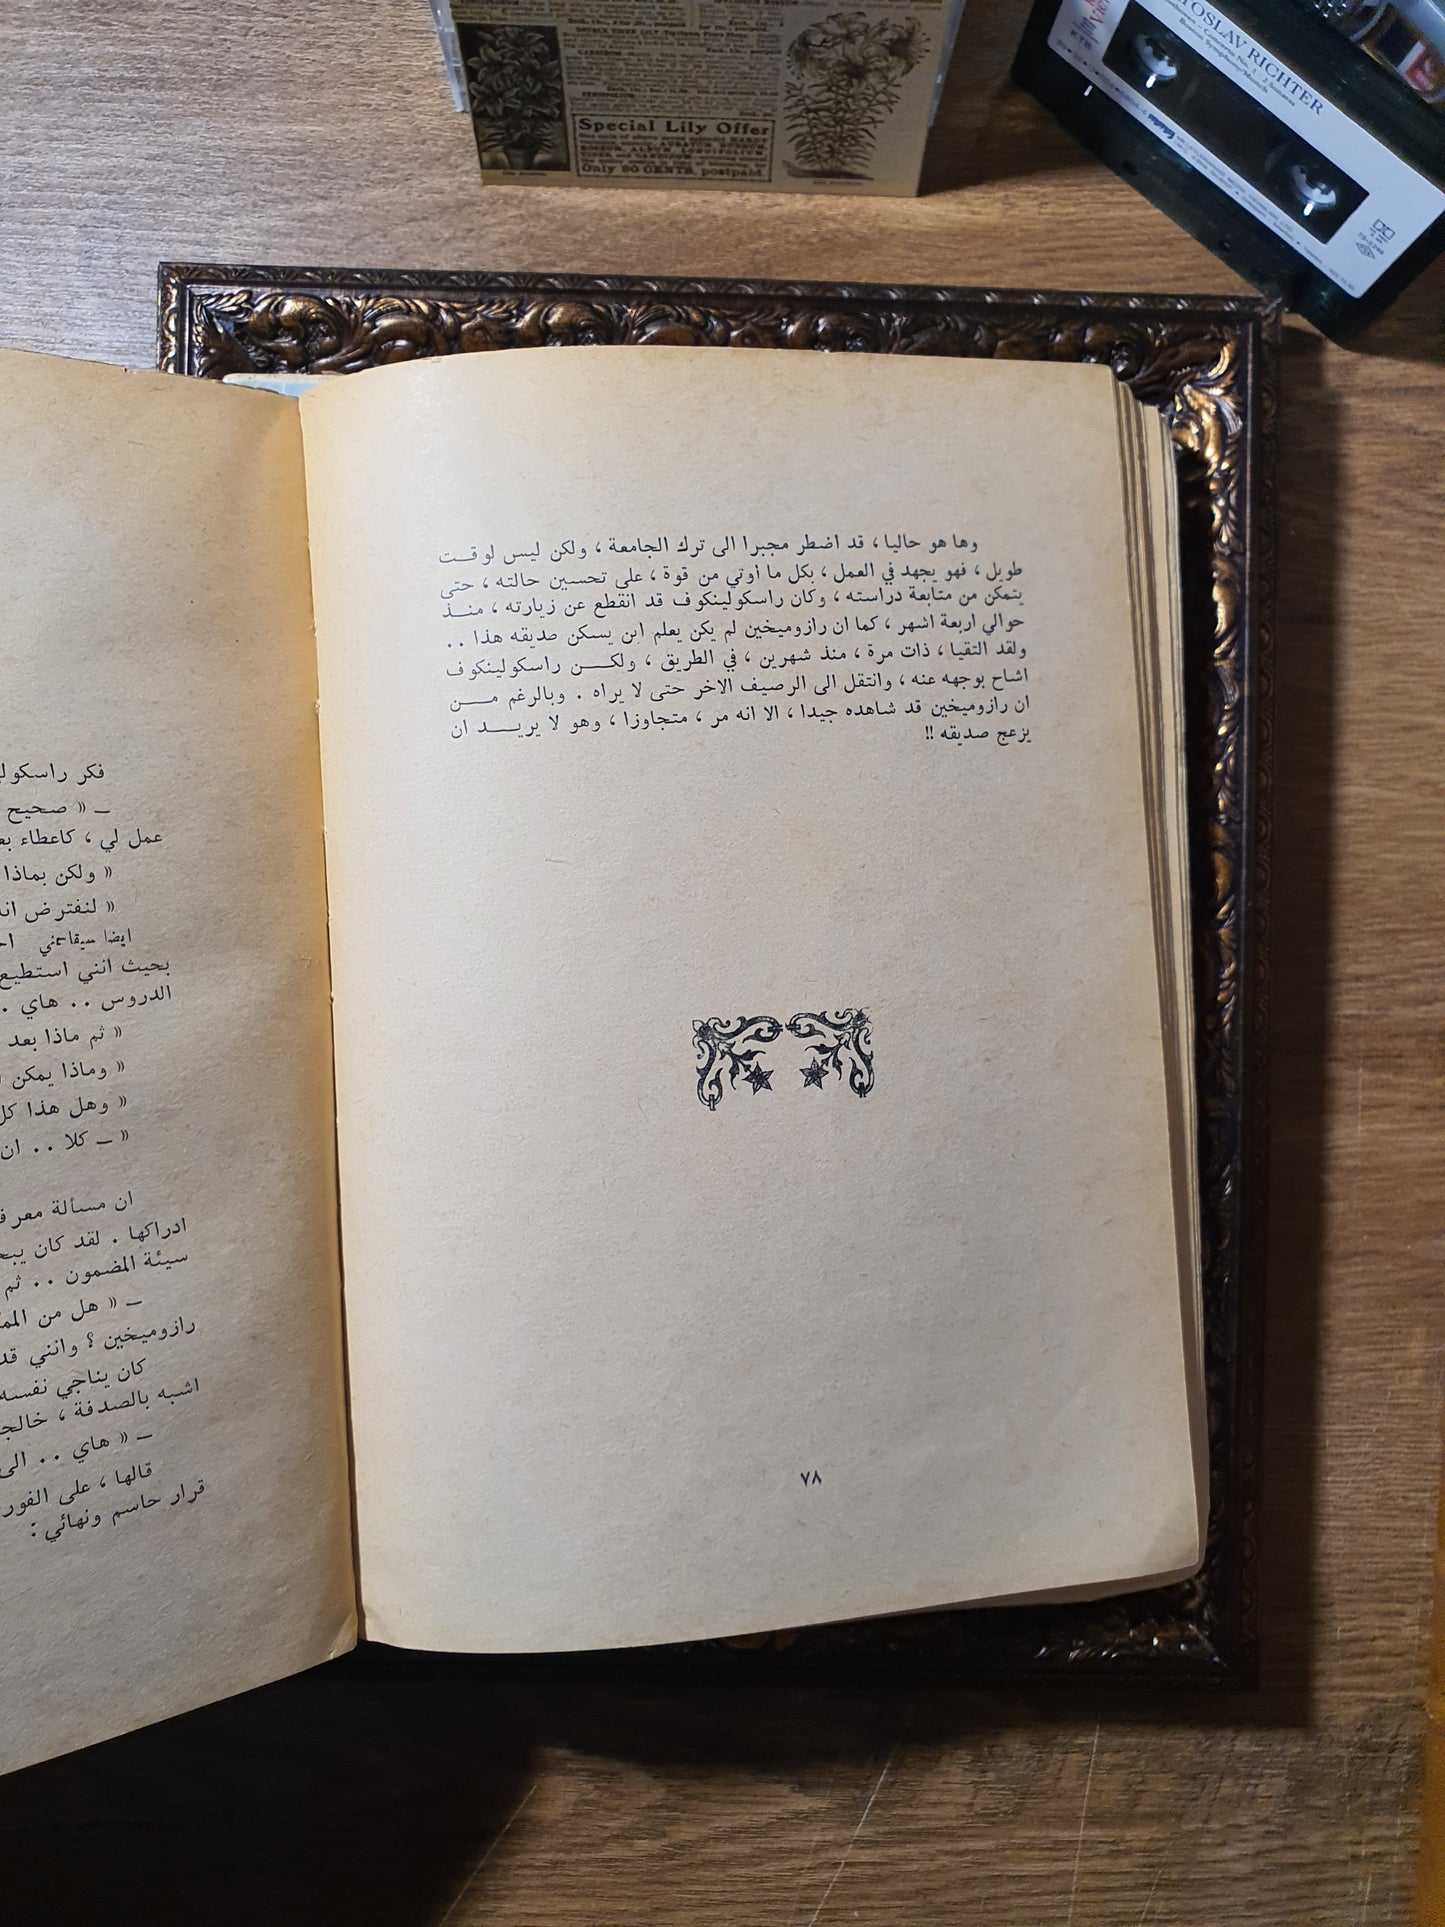 DOUBLE TIGER LILY
Special Lily Offer
Only 90 CENTS, postpaid.
TOSLAV RICHTER
Beethoven – Concerto No. 1 · 2 Sonatas
Boston Symphony/Munch
KTS
وها هو حاليا ، قد اضطر مجبرا الى ترك الجامعة ، ولكن ليس لوقـت
طويل ، فهو يجهد في العمل ، بكل ما أوتي من قوة ، على تحسين حالته ، حتى
يتمكن من متابعة دراسته ، وكان راسكولينكوف قد انقطع عن زيارته ، منـذ
حوالي اربعة اشهر ، كما ان رازوميخين لم يكن يعلم اين يسكن صديقه هذا ..
ولقد التقيا ، ذات مرة ، منذ شهرين ، في الطريق ، ولكـن راسكولينكوف
اشاح بوجهه عنه ، وانتقل الى الرصيف الاخر حتى لا يراه . وبالرغم مـن
ان رازوميخين قد شاهده جيدا ، الا انه مر ، متجاوزا ، وهو لا يريـد ان
يزعج صديقه !!
٧٨
فكر راسكولي
ـ « صحيح
عمل لي ، كاعطاء بع
« ولكن بماذا
« لنفترض انه
ايضا سيقاسمني
بحيث انني استطيع
الدروس .. هاي .
« ثم ماذا بعد
« وماذا يمكن
« وهل هذا كل
« ـ كلا .. ان
ان مسألة معرف
ادراكها . لقد كان يبح
سيئة المضمون .. ثم
ـ « هل من المم
رازوميخين ؟ وانني قد
كان يناجي نفسه
اشبه بالصدفة ، خالج
ـ « هاي .. الى
قالها ، على الفور
قرار حاسم ونهائي :